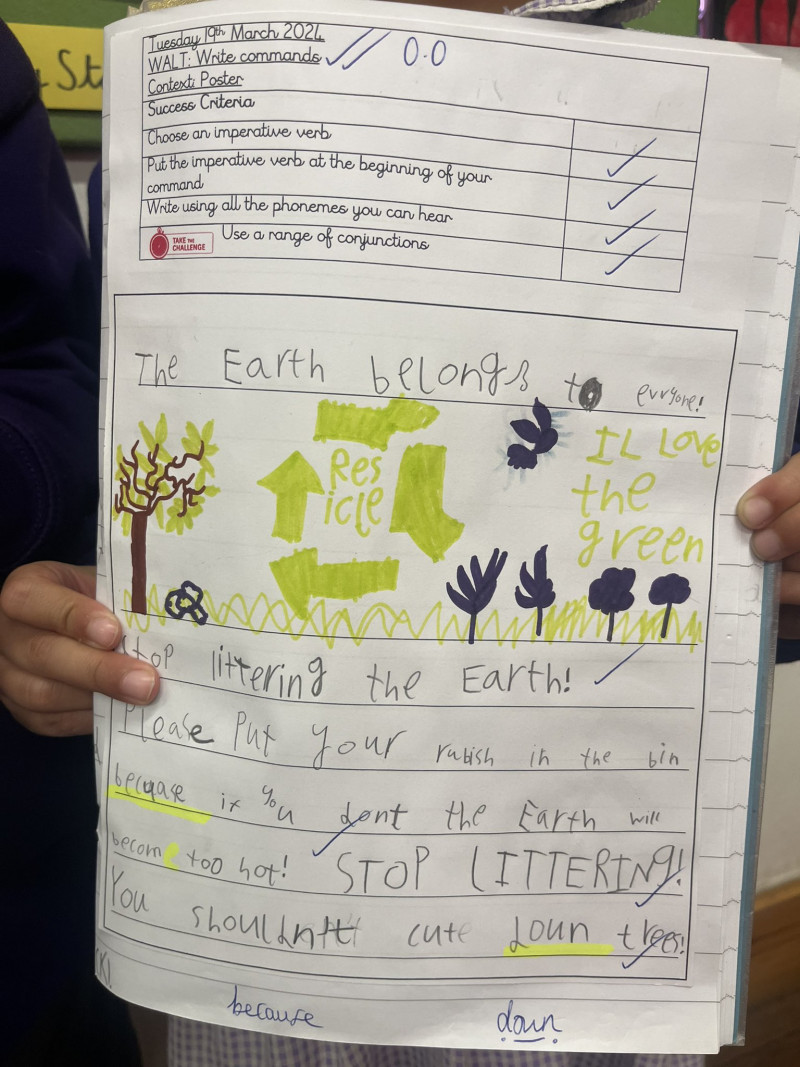 Tuesday 19th March 2024
WALT: Write commands
0.0
Context: Poster
Success Criteria
Choose an imperative verb
Put the imperative verb at the beginning of your
command
Write using all the phonemes you can hear
TAKE THE
CHALLENGE
Use a range of conjunctions
The Earth belongs to evryone!
Res
icle
IL Love
the
green
Stop littering the Earth!
Please Put your rubish in the bin
becuase if you dont the Earth will
become too hot! STOP LITTERING!
You shouldn't cute doun trees!
because
down